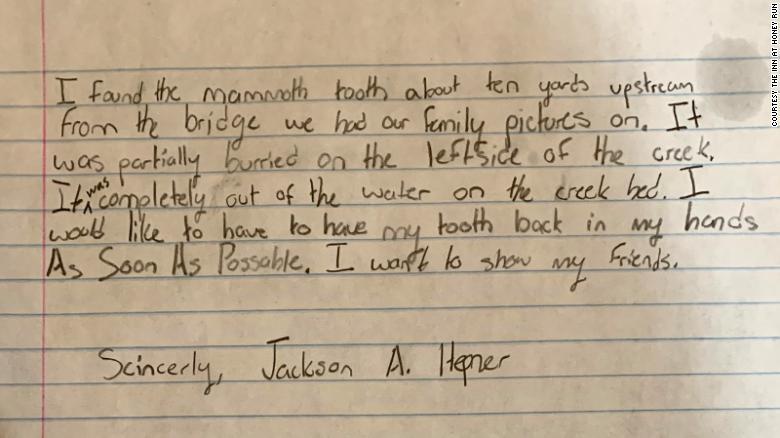 I found the mammoth tooth about ten yards upstream
from the bridge we had our family pictures on. It
was partially burried on the leftside of the creek.
It was completely out of the water on the creek bed. I
would like to have to have my tooth back in my hands
As Soon As Possable. I want to show my friends.
Scincerly, Jackson A. Hepner
COURTESY THE INN AT HONEY RUN